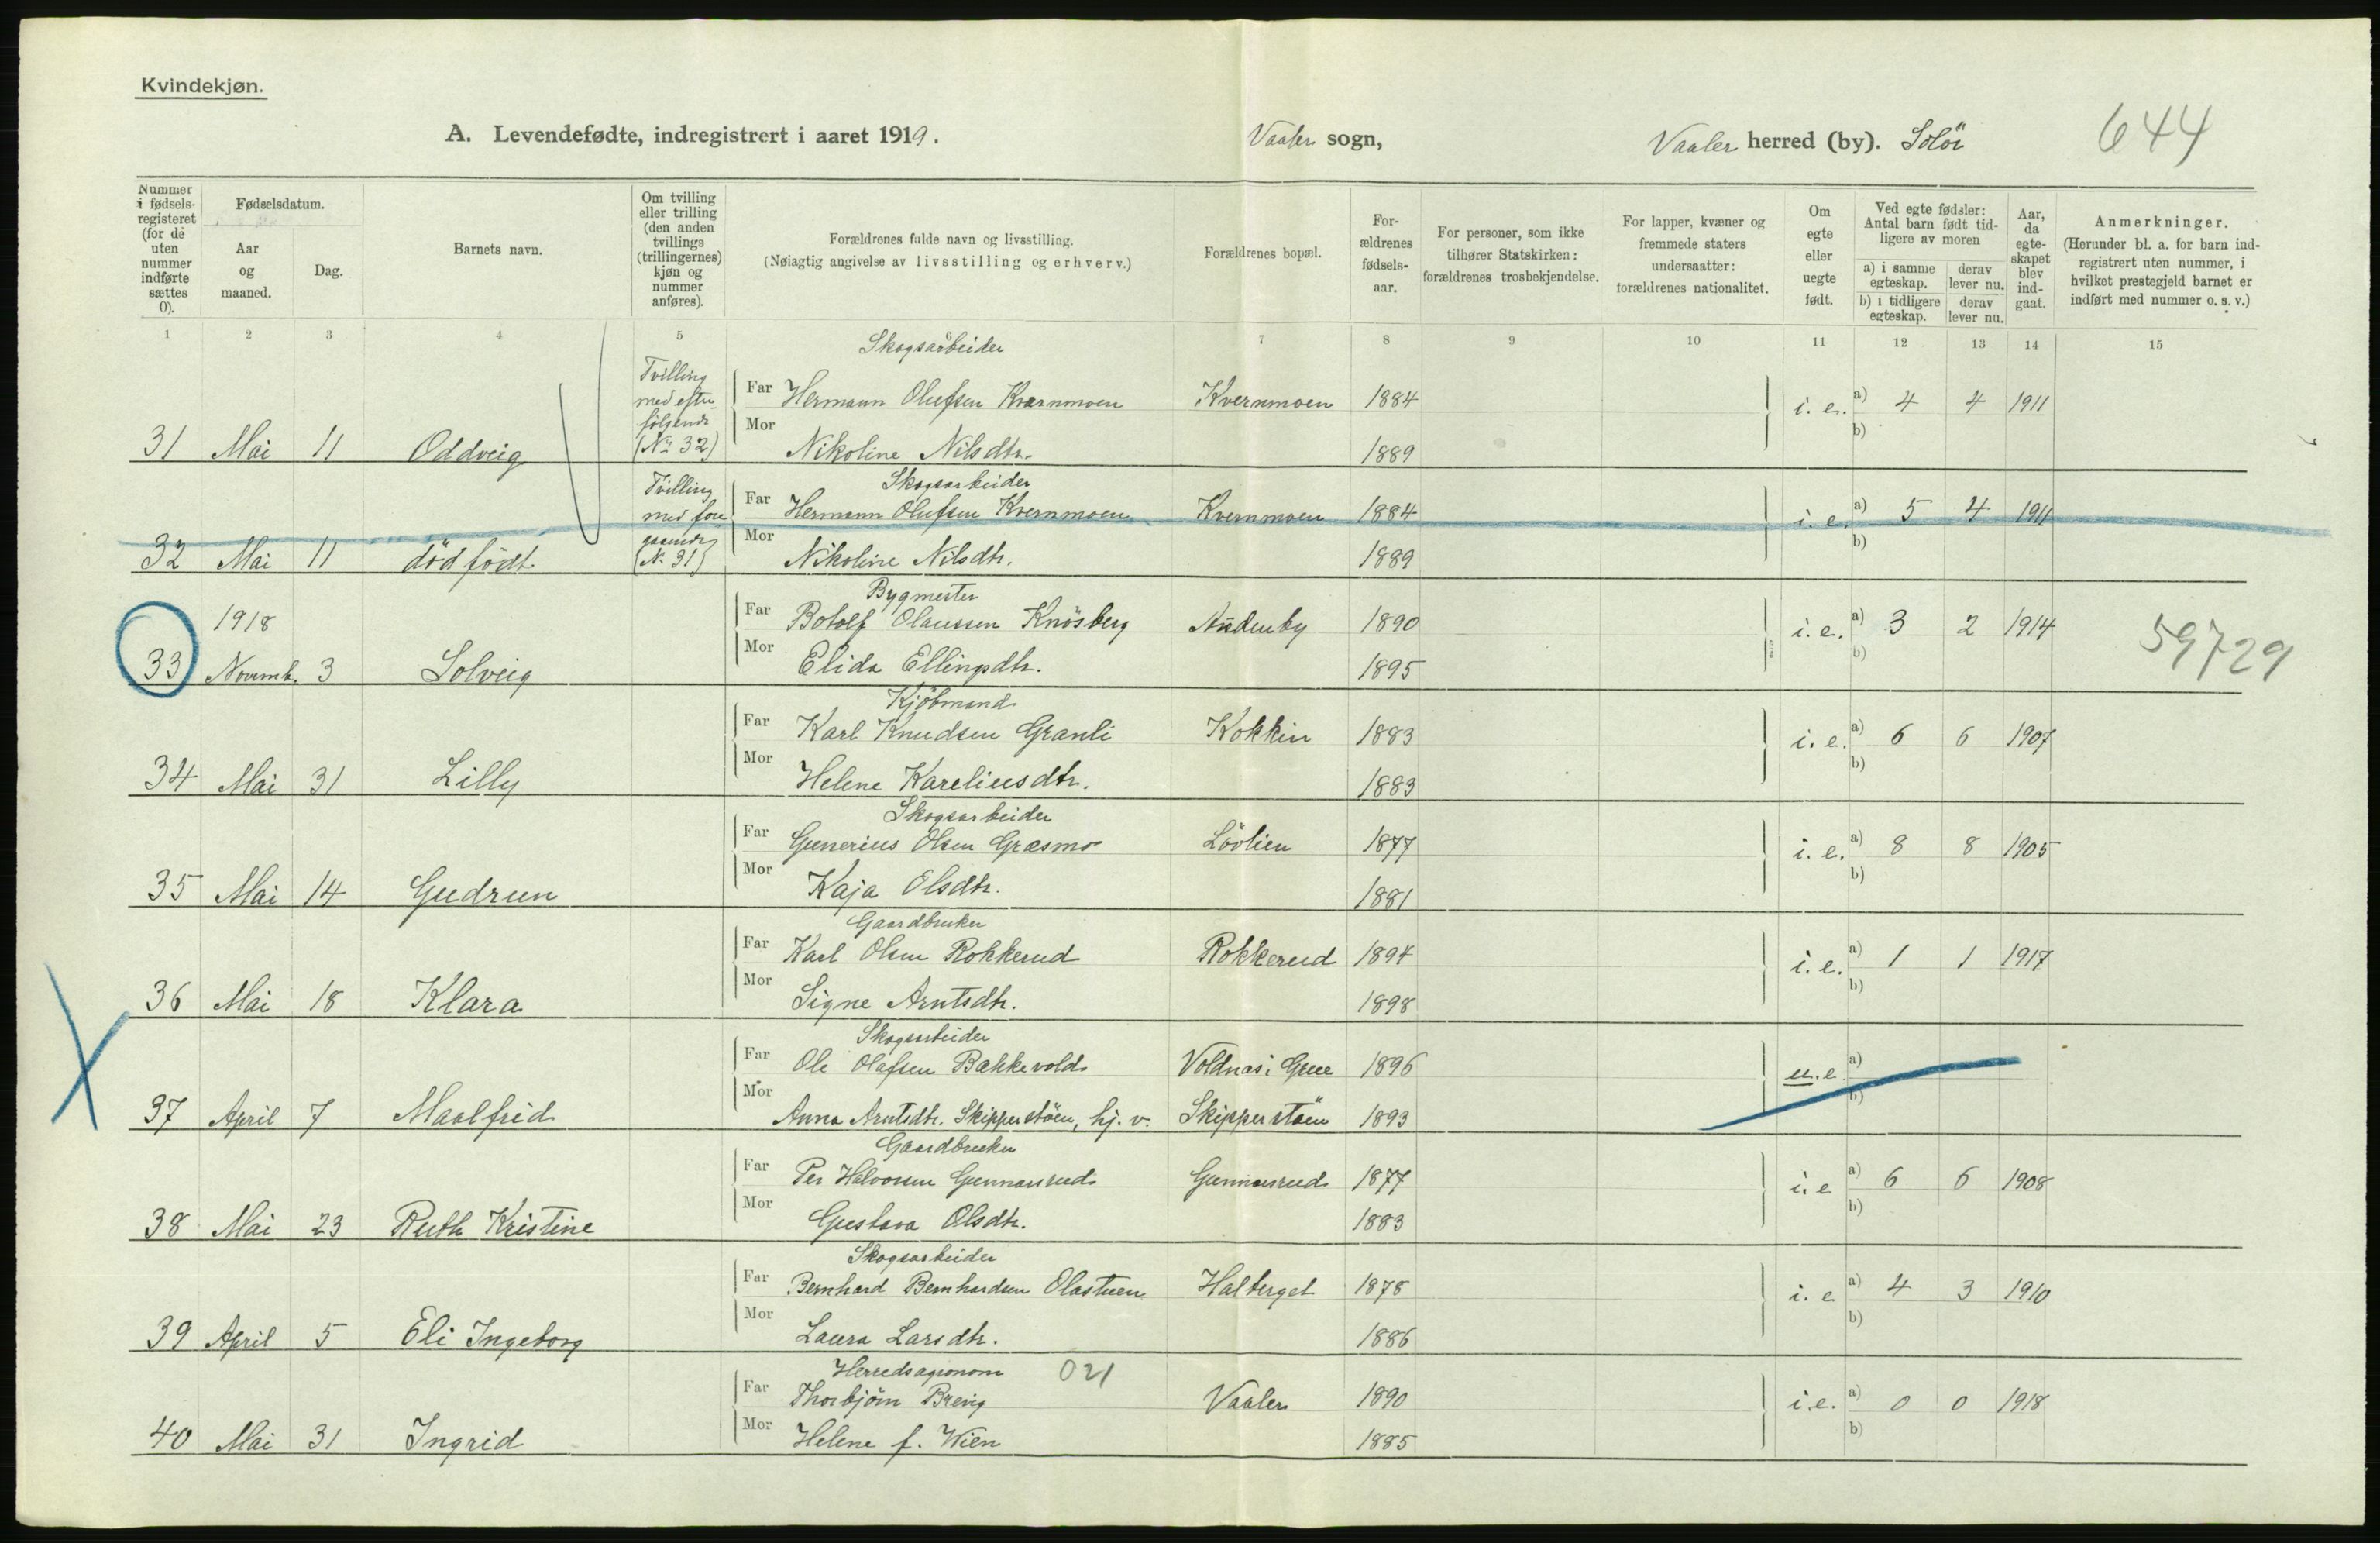 Kvindekjøn.
A. Levendefødte, indregistrert i aaret 1919. Vaaler sogn, Vaaler herred (by). Solör 644
Nummer i fødselsregisteret (for de uten nummer indførte sættes 0).
Fødselsdatum.
Aar og maaned.
Dag.
Barnets navn.
Om tvilling eller trilling (den anden tvillings (trillingernes) kjøn og nummer anføres).
Forældrenes fulde navn og livsstilling.
(Nøiagtig angivelse av livsstilling og erhverv.)
Forældrenes bopæl.
Forældrenes fødselsaar.
For personer, som ikke tilhører Statskirken: forældrenes trosbekjendelse.
For lapper, kvæner og fremmede staters undersaatter: forældrenes nationalitet.
Om egte eller uegte født.
Ved egte fødsler: Antal barn født tidligere av moren
a) i samme egteskap. derav lever nu.
b) i tidligere egteskap. derav lever nu.
Aar, da egteskapet blev indgaat.
Anmerkninger.
(Herunder bl. a. for barn indregistrert uten nummer, i hvilket prestegjeld barnet er indført med nummer o. s. v.)
1 2 3 4 5 6 7 8 9 10 11 12 13 14 15
Skogsarbeider
Tvilling med efterfølgende (No 32)
Far Hermann Olufsen Kvernmoen Kvernmoen 1884 i. e. a) 4 4 1911
b)
31 Mai 11 Oddveig Mor Nikoline Nilsdtr. 1889
Skogsarbeider
Tvilling med foregaaende (No 31)
Far Hermann Olufsen Kvernmoen Kvernmoen 1884 i. e. a) 5 4 1911
b)
32 Mai 11 dödfödt. Mor Nikoline Nilsdtr. 1889
Bygmester
1918 Far Botolf Olaussen Knösberg Audenby 1890 i. e. a) 3 2 1914 59729
b)
33 Novemb. 3 Solveig Mor Elida Ellingsdtr. 1895
Kjöbmand
Far Karl Knudsen Granli Kokkin 1883 i. e. a) 6 6 1907
b)
34 Mai 31 Lilly Mor Helene Kareliusdtr. 1883
Skogsarbeider
Far Gunerius Olsen Græsmo Lövlien 1877 i. e. a) 8 8 1905
b)
35 Mai 14 Gudrun Mor Kaja Olsdtr. 1881
Gaardbruker
Far Karl Olsen Rokkerud Rokkerud 1894 i. e. a) 1 1 1917
b)
36 Mai 18 Klara Mor Signe Arntsdtr. 1898
Skogsarbeider
Far Ole Olafsen Bakkevold Voldnæs i Grue 1896 u. e. a)
b)
37 April 7 Maalfrid Mor Anna Arntsdtr. Skipperstöen, hj. v. Skipperstöen 1893
Gaardbruker
Far Per Halvorsen Gunnarsrud Gunnarsrud 1877 i. e a) 6 6 1908
b)
38 Mai 23 Ruth Kristine Mor Gustava Olsdtr. 1883
Skogsarbeider
Far Bernhard Bernhardsen Olastuen Halberget 1878 i. e a) 4 3 1910
b)
39 April 5 Eli Ingeborg Mor Laura Larsdtr. 1886
Herredsagronom 021
Far Thorbjörn Breig Vaaler 1890 i. e. a) 0 0 1918
b)
40 Mai 31 Ingrid Mor Helene f. Wien 1885